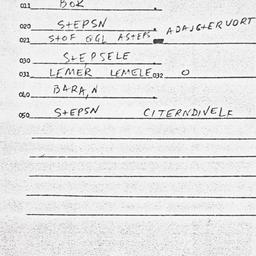 011 BOK
020 S+EPSN ADAJS+ERVORT
021 S+OF GGL AS+EPS
030 S+EPSELE
033 LEMER LEMELE 032 O
BARA,N
050 S+EPSN CITERNDIVELE